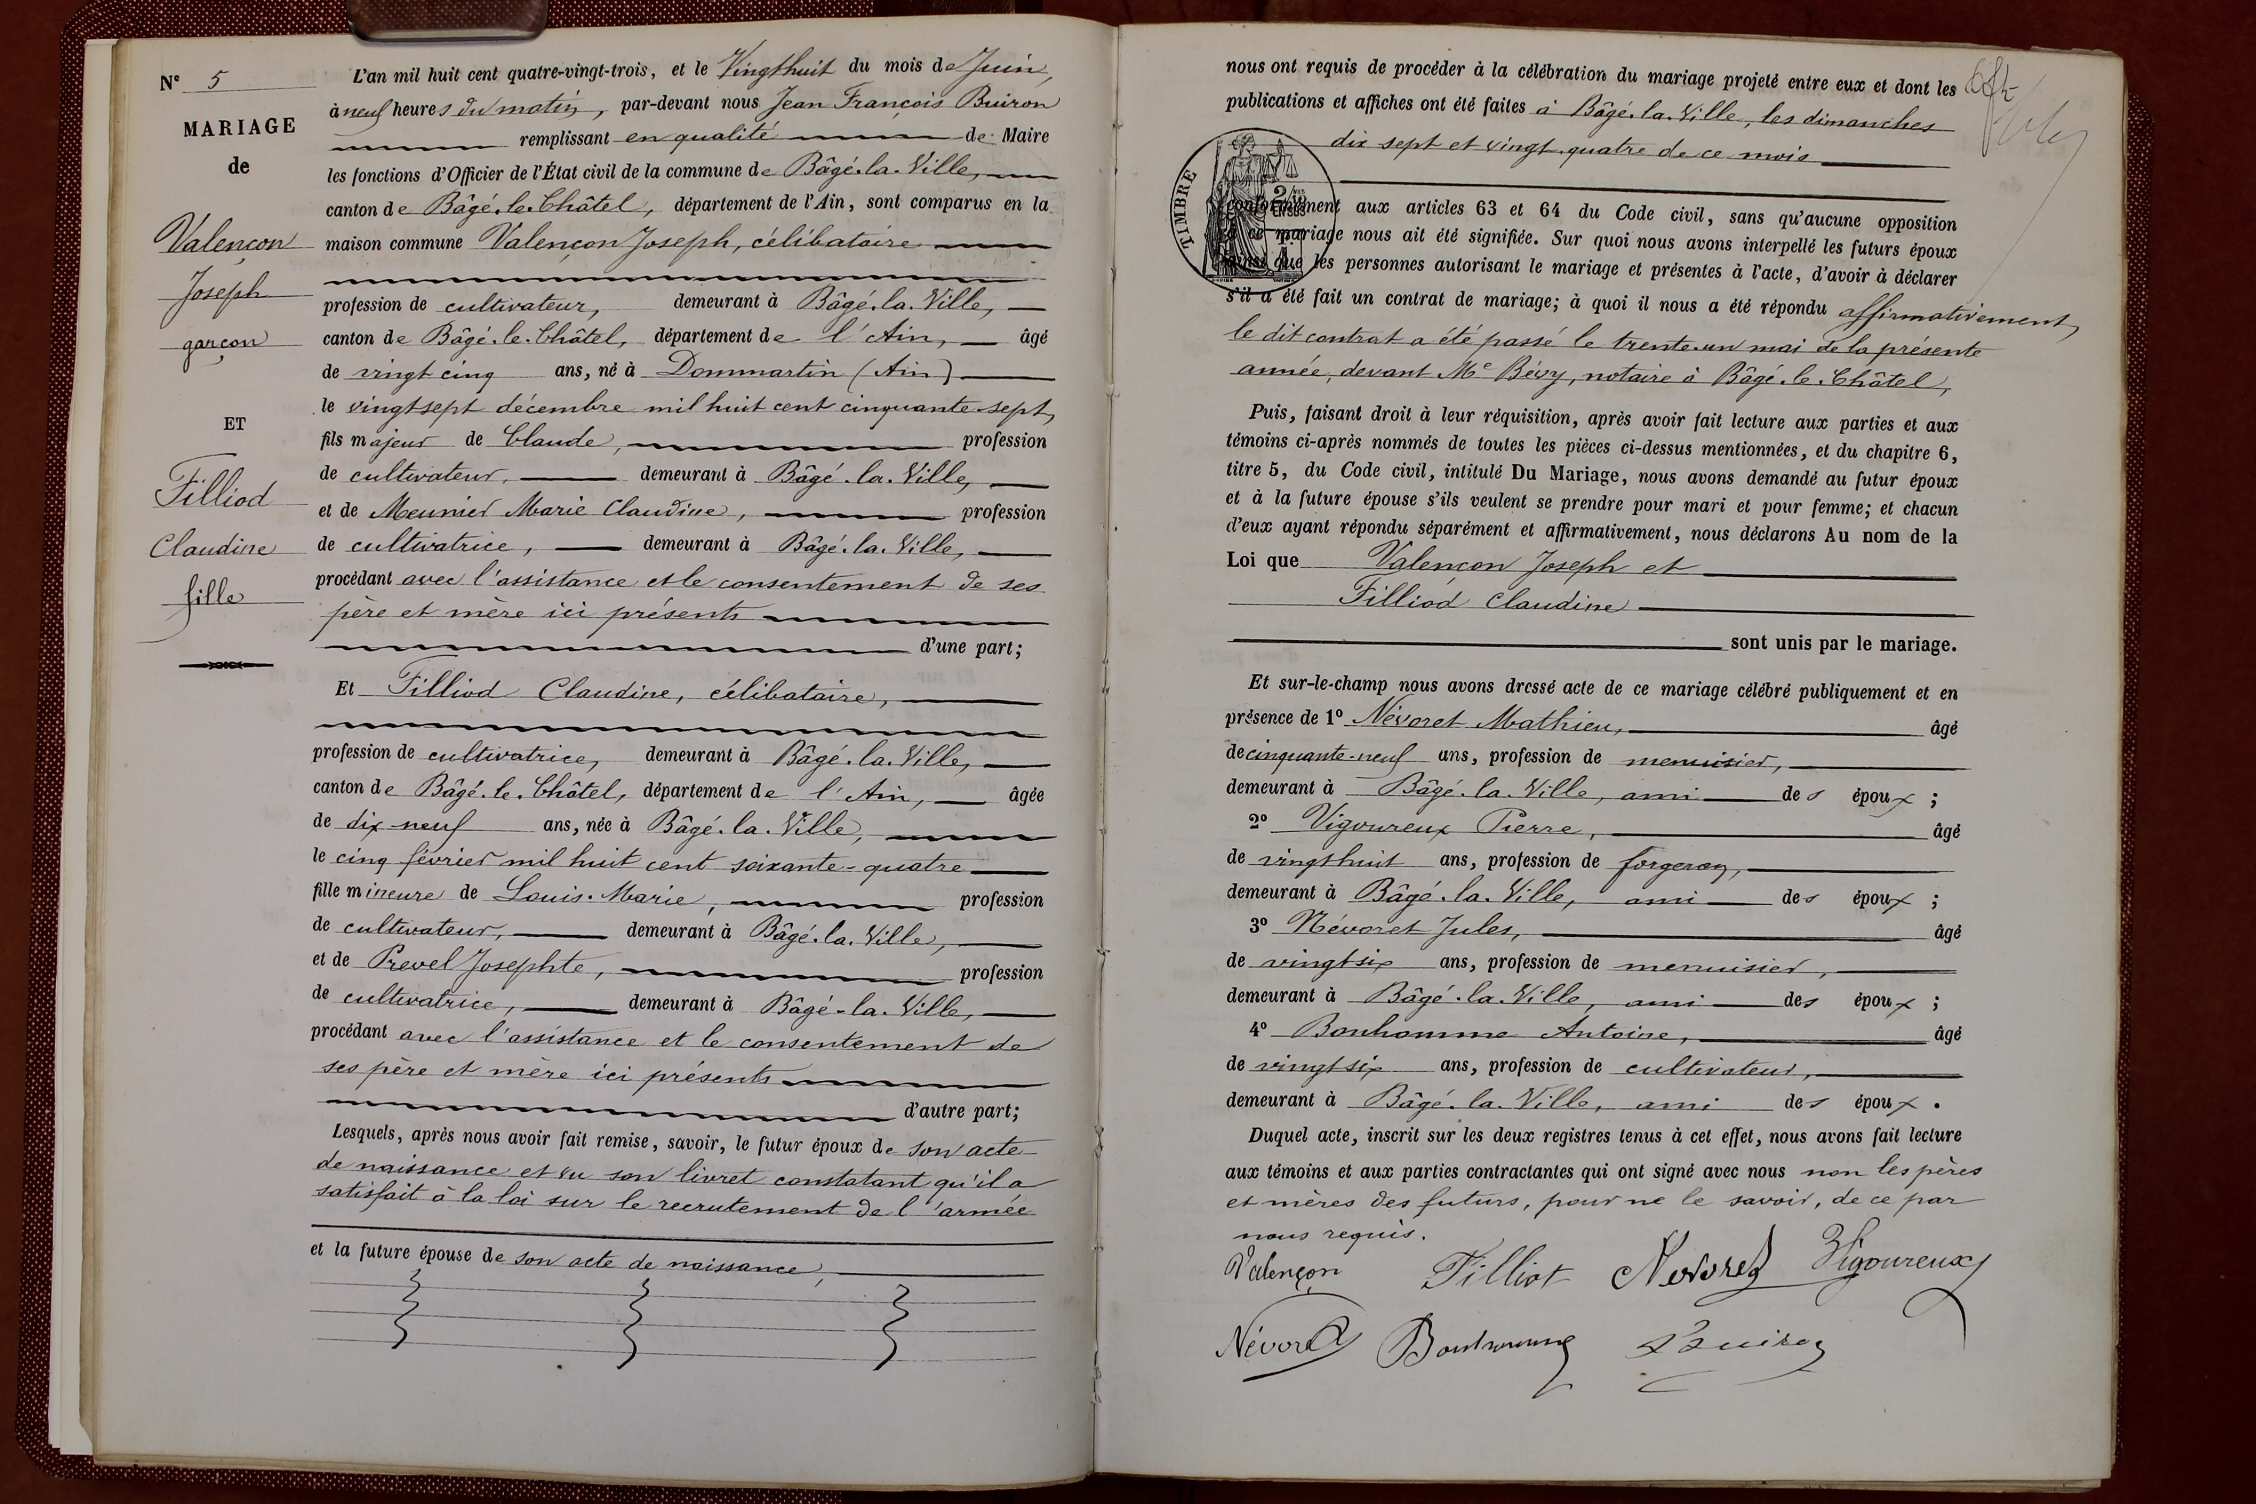 Nº 5
MARIAGE
de
Valençon
Joseph
garçon
ET
Filliod
Claudine
fille
L'an mil huit cent quatre-vingt-trois, et le Vingthuit du mois de Juin,
à neuf heures du matin, par-devant nous Jean François Buiron
remplissant en qualité de Maire
les fonctions d'Officier de l'État civil de la commune de Bâgé-la-Ville,
canton de Bâgé-le-Châtel, département de l'Ain, sont comparus en la
maison commune Valençon Joseph, célibataire
profession de cultivateur, demeurant à Bâgé-la-Ville,
canton de Bâgé-le-Châtel, département de l'Ain, âgé
de vingt cinq ans, né à Dommartin (Ain)
le vingtsept décembre mil huit cent cinquante-sept,
fils majeur de Claude, profession
de cultivateur, demeurant à Bâgé-la-Ville,
et de Meunier Marie Claudine, profession
de cultivatrice, demeurant à Bâgé-la-Ville,
procédant avec l'assistance et le consentement de ses
père et mère ici présents
d'une part;
Et Filliod Claudine, célibataire,
profession de cultivatrice, demeurant à Bâgé-la-Ville,
canton de Bâgé-le-Châtel, département de l'Ain, âgée
de dix-neuf ans, née à Bâgé-la-Ville,
le cinq février mil huit cent soixante-quatre
fille mineure de Louis-Marie, profession
de cultivateur, demeurant à Bâgé-la-Ville,
et de Prevel Josephte, profession
de cultivatrice, demeurant à Bâgé-la-Ville,
procédant avec l'assistance et le consentement de
ses père et mère ici présents
d'autre part;
Lesquels, après nous avoir fait remise, savoir, le futur époux de son acte
de naissance et vu son livret constatant qu'il a
satisfait à la loi sur le recrutement de l'armée
et la future épouse de son acte de naissance,
nous ont requis de procéder à la célébration du mariage projeté entre eux et dont les
publications et affiches ont été faites à Bâgé-la-Ville, les dimanches
dix sept et vingt-quatre de ce mois
TIMBRE
conformément aux articles 63 et 64 du Code civil, sans qu'aucune opposition
à ce mariage nous ait été signifiée. Sur quoi nous avons interpellé les futurs époux
ainsi que les personnes autorisant le mariage et présentes à l'acte, d'avoir à déclarer
s'il a été fait un contrat de mariage; à quoi il nous a été répondu affirmativement,
le dit contrat a été passé le trente-un mai de la présente
année, devant Me Bévy, notaire à Bâgé-le-Châtel,
Puis, faisant droit à leur réquisition, après avoir fait lecture aux parties et aux
témoins ci-après nommés de toutes les pièces ci-dessus mentionnées, et du chapitre 6,
titre 5, du Code civil, intitulé Du Mariage, nous avons demandé au futur époux
et à la future épouse s'ils veulent se prendre pour mari et pour femme; et chacun
d'eux ayant répondu séparément et affirmativement, nous déclarons Au nom de la
Loi que Valençon Joseph et
Filliod Claudine
sont unis par le mariage.
Et sur-le-champ nous avons dressé acte de ce mariage célébré publiquement et en
présence de 1º Névoret Mathieu, âgé
de cinquante-neuf ans, profession de menuisier,
demeurant à Bâgé-la-Ville, ami des époux ;
2º Vigoureux Pierre, âgé
de vingthuit ans, profession de forgeron,
demeurant à Bâgé-la-Ville, ami des époux ;
3º Névoret Jules, âgé
de vingtsix ans, profession de menuisier,
demeurant à Bâgé-la-Ville, ami des époux ;
4º Bonhomme Antoine, âgé
de vingtsix ans, profession de cultivateur,
demeurant à Bâgé-la-Ville, ami des époux .
Duquel acte, inscrit sur les deux registres tenus à cet effet, nous avons fait lecture
aux témoins et aux parties contractantes qui ont signé avec nous non les pères
et mères des futurs, pour ne le savoir, de ce par
nous requis.
Valençon Filliot Nevoret Vigoureux
Névoret Bonhomme Buiron